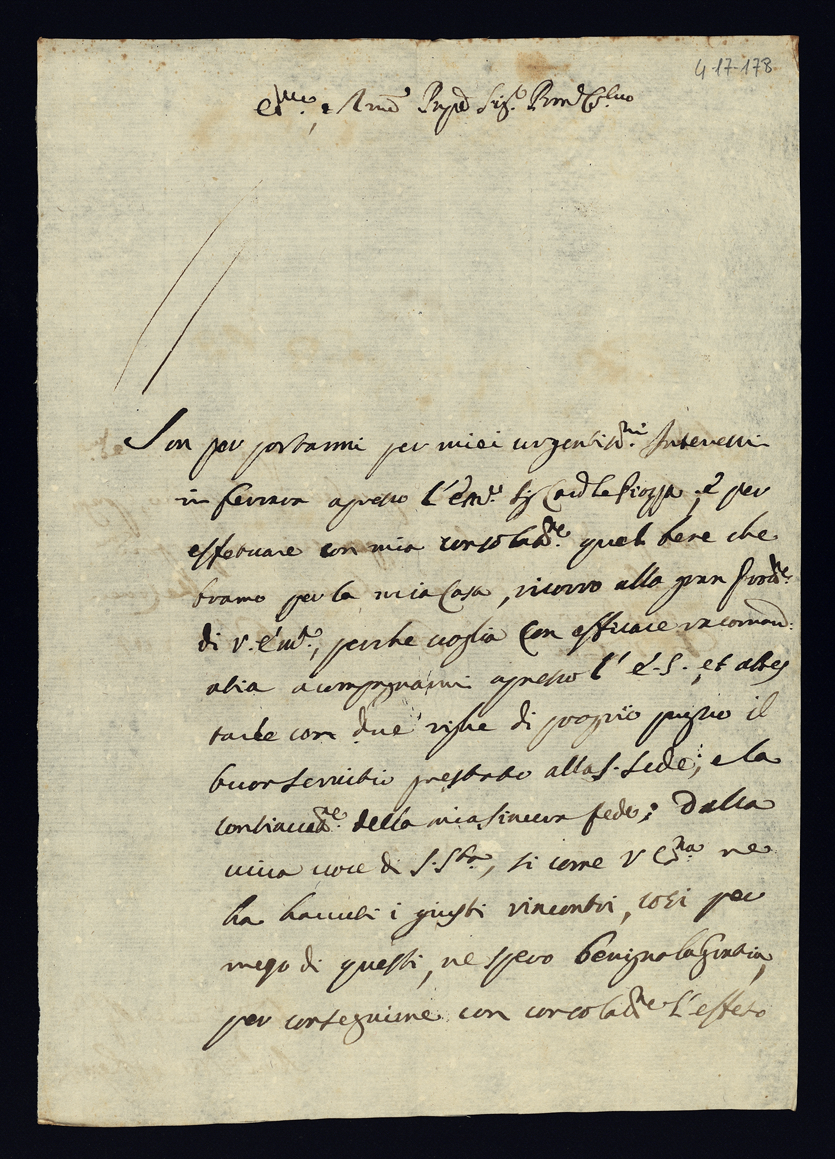 4-17-178
Son per portarmi per miei urgentis.mi Interessi
in Ferrara apresso l'Em.o Sig Card.le Piazza, e per
effetuare con mia consolat.ne quel bene che
bramo per la mia Casa, ricorro alla gran
di V. Em.a, perche voglia con efficace racomand:
atia acompagnarmi apresso l' E.S., et attes
tarle con due righe di proprio pugno il
buon servitio prestato alla S. Sede, e la
continuat.ne della mia sincera fede; Dalla
viva voce di S. S.tà, si come V Em.za ne
ha havuti i giusti rincontri, cosi per
mezo di questi, ne spero benigna la Gratia,
per conseguirne con consolat.ne l'effeto